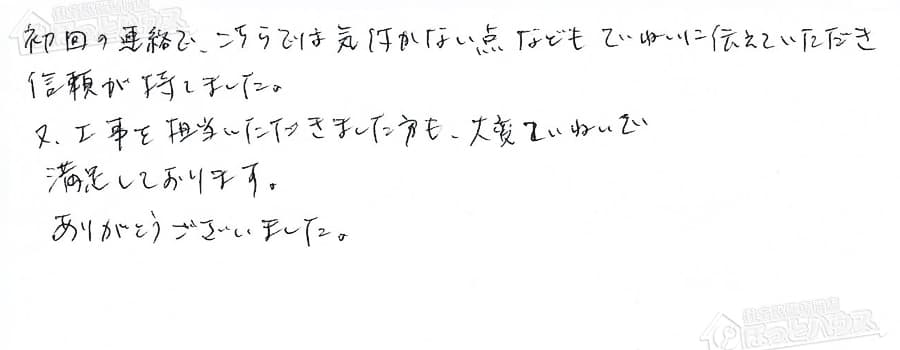 初回の連絡で、こちらでは気付かない点などもていねいに伝えていただき
信頼が持てました。
又、工事を担当いただきました方も、大変ていねいで
満足しております。
ありがとうございました。
住宅設備専門店
ほっとハウス